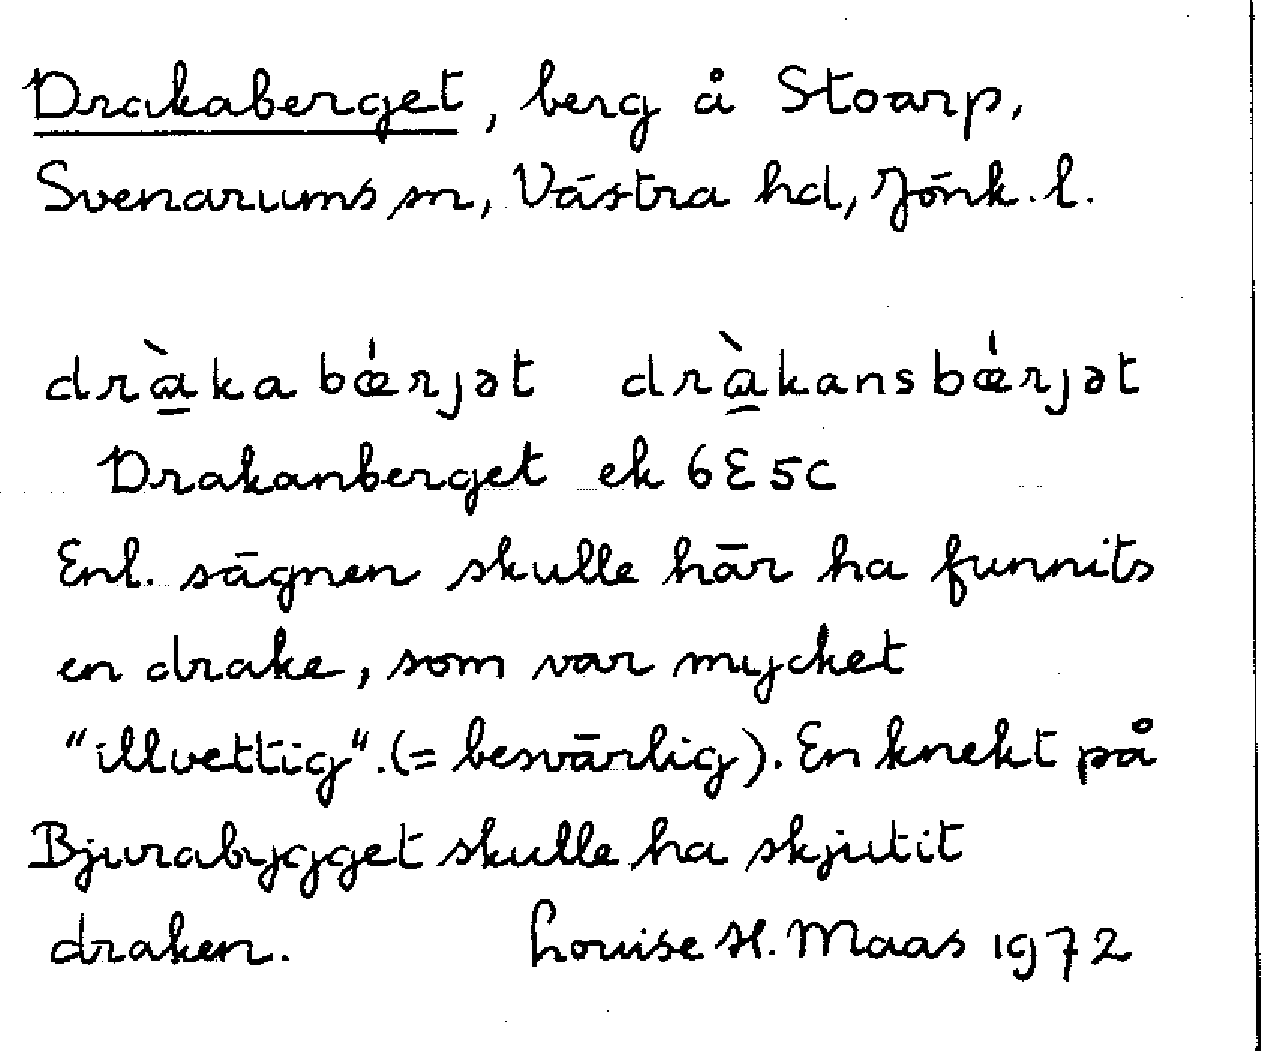 Drakaberget, berg å Stoarp,
Svenarums sn, Västra hd, Jönk. l.
dràka bœ́rjət dràkansbœ́rjət
Drakanberget ek 6E5c
Enl. sägnen skulle här ha funnits
en drake, som var mycket
"illvettig".(= besvärlig). En knekt på
Bjurabygget skulle ha skjutit
draken. Louise H. Maas 1972